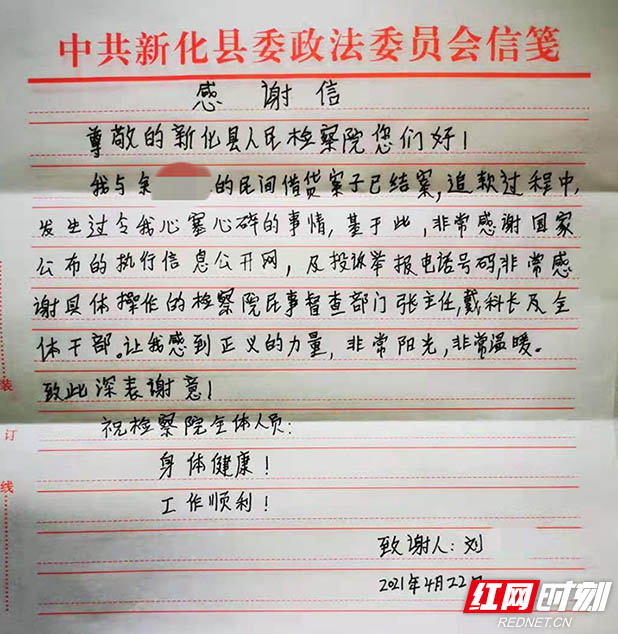 中共新化县委政法委员会信笺
感谢信
尊敬的新化县人民检察院您们好！
我与余的民间借贷案子已结案，追款过程中，
发生过令我心塞心碎的事情，基于此，非常感谢国家
公布的执行信息公开网，及投诉举报电话号码，非常感
谢具体操作的检察院民事督查部门张主任，戴科长及全
体干部。让我感到正义的力量，非常阳光，非常温暖。
致此深表谢意！
祝检察院全体人员：
身体健康！
工作顺利！
致谢人：刘
2021年4月22日
装
订
线
红网时刻
REDNET.CN